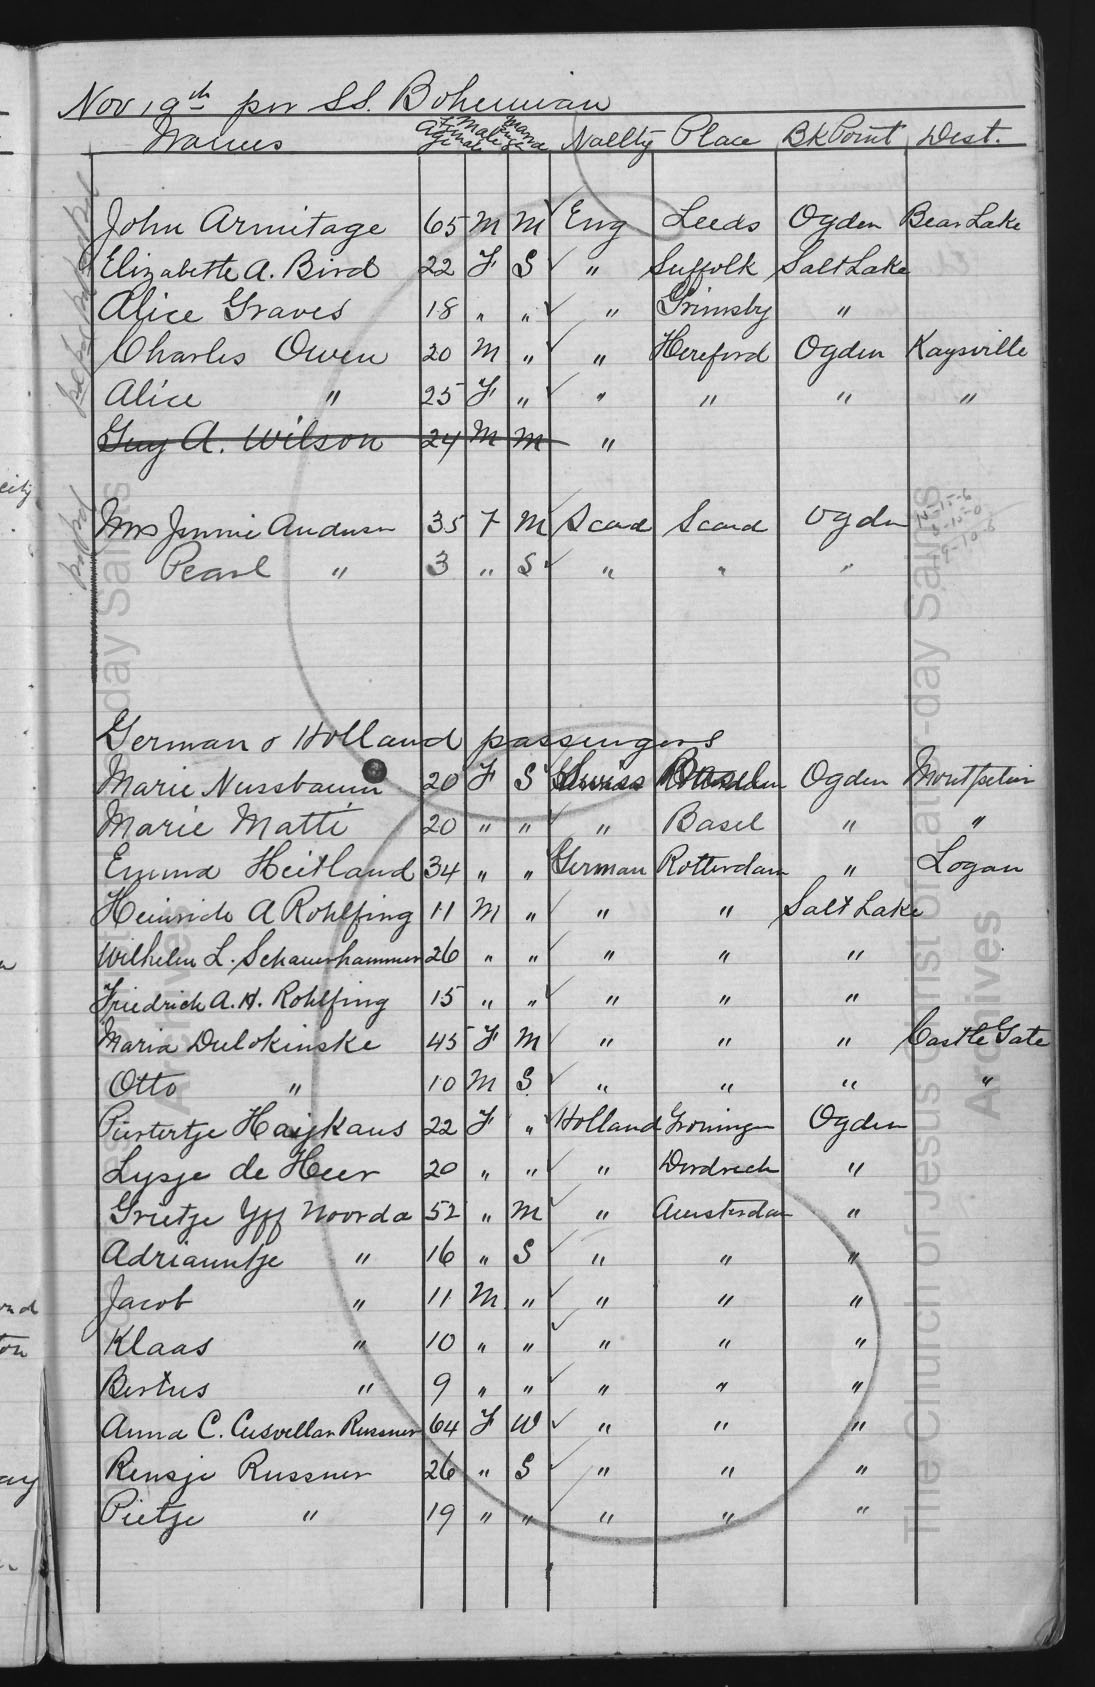 Nov 19th per S.S. Bohemian
Names Age Female Male Marr Single Natlty Place Bk Point Dest.
John Armitage 65 M M ✓ Eng Leeds Ogden Bear Lake
Elizabeth A. Bird 22 F S ✓ " Suffolk Salt Lake
Alice Graves 18 " " ✓ " Grimsby "
Charles Owen 20 M " ✓ " Hereford Ogden Kaysville
Alice " 25 F " ✓ " " " "
Guy A. Wilson 24 M M "
Mrs Jennie Anderson 35 F M ✓ Scand Scand Ogden
Pearl " 3 " S ✓ " " "
German & Holland passengers
Marie Nussbaum 20 F S ✓ Swiss Basel Ogden Montpelier
Marie Matti 20 " " ✓ " Basel " "
Emma Heitland 34 " " ✓ German Rotterdam " Logan
Heinrich A Rohlfing 11 M " ✓ " " Salt Lake
Wilhelm L. Schauerhammer 26 " " ✓ " " "
Friedrich A. H. Rohlfing 15 " " ✓ " " "
Maria Dulokinske 45 F M ✓ " " " Castle Gate
Otto " 10 M S ✓ " " " "
Pietertje Haijkaus 22 F " ✓ Holland Groningen Ogden
Lysje de Heer 20 " " ✓ " Dordrech "
Grietje Yff Noorda 52 " M ✓ " Amsterdam "
Adrianntje " 16 " S ✓ " " "
Jacob " 11 M " ✓ " " "
Klaas " 10 " " ✓ " " "
Bertus " 9 " " ✓ " " "
Anna C. Cusvellar Russner 64 F W ✓ " " "
Rensje Russner 26 " S ✓ " " "
Pietje " 19 " " ✓ " " "
The Church of Jesus Christ of Latter-day Saints
Archives